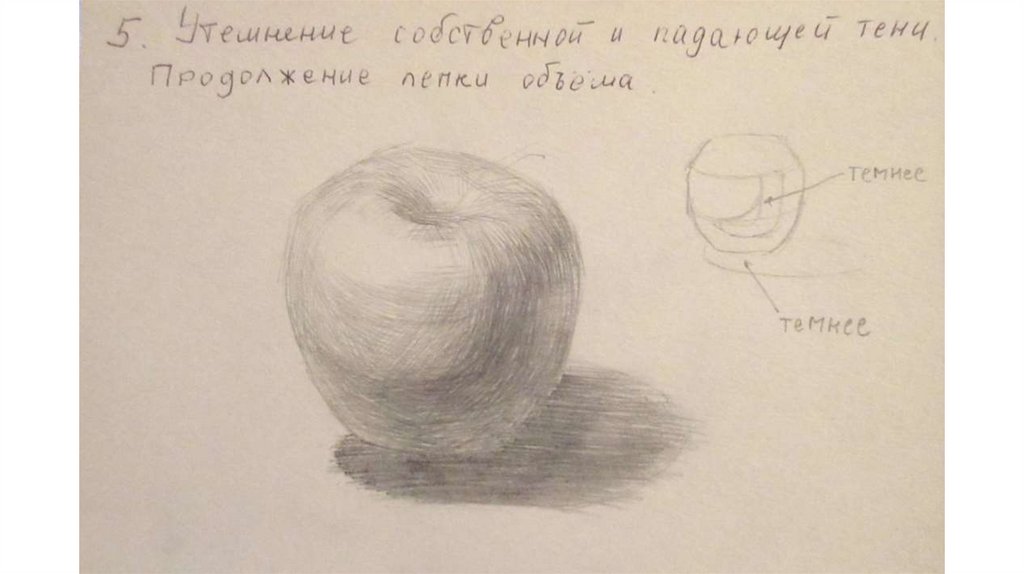 5. Утемнение собственной и падающей тени.
Продолжение лепки объёма.
темнее
темнее